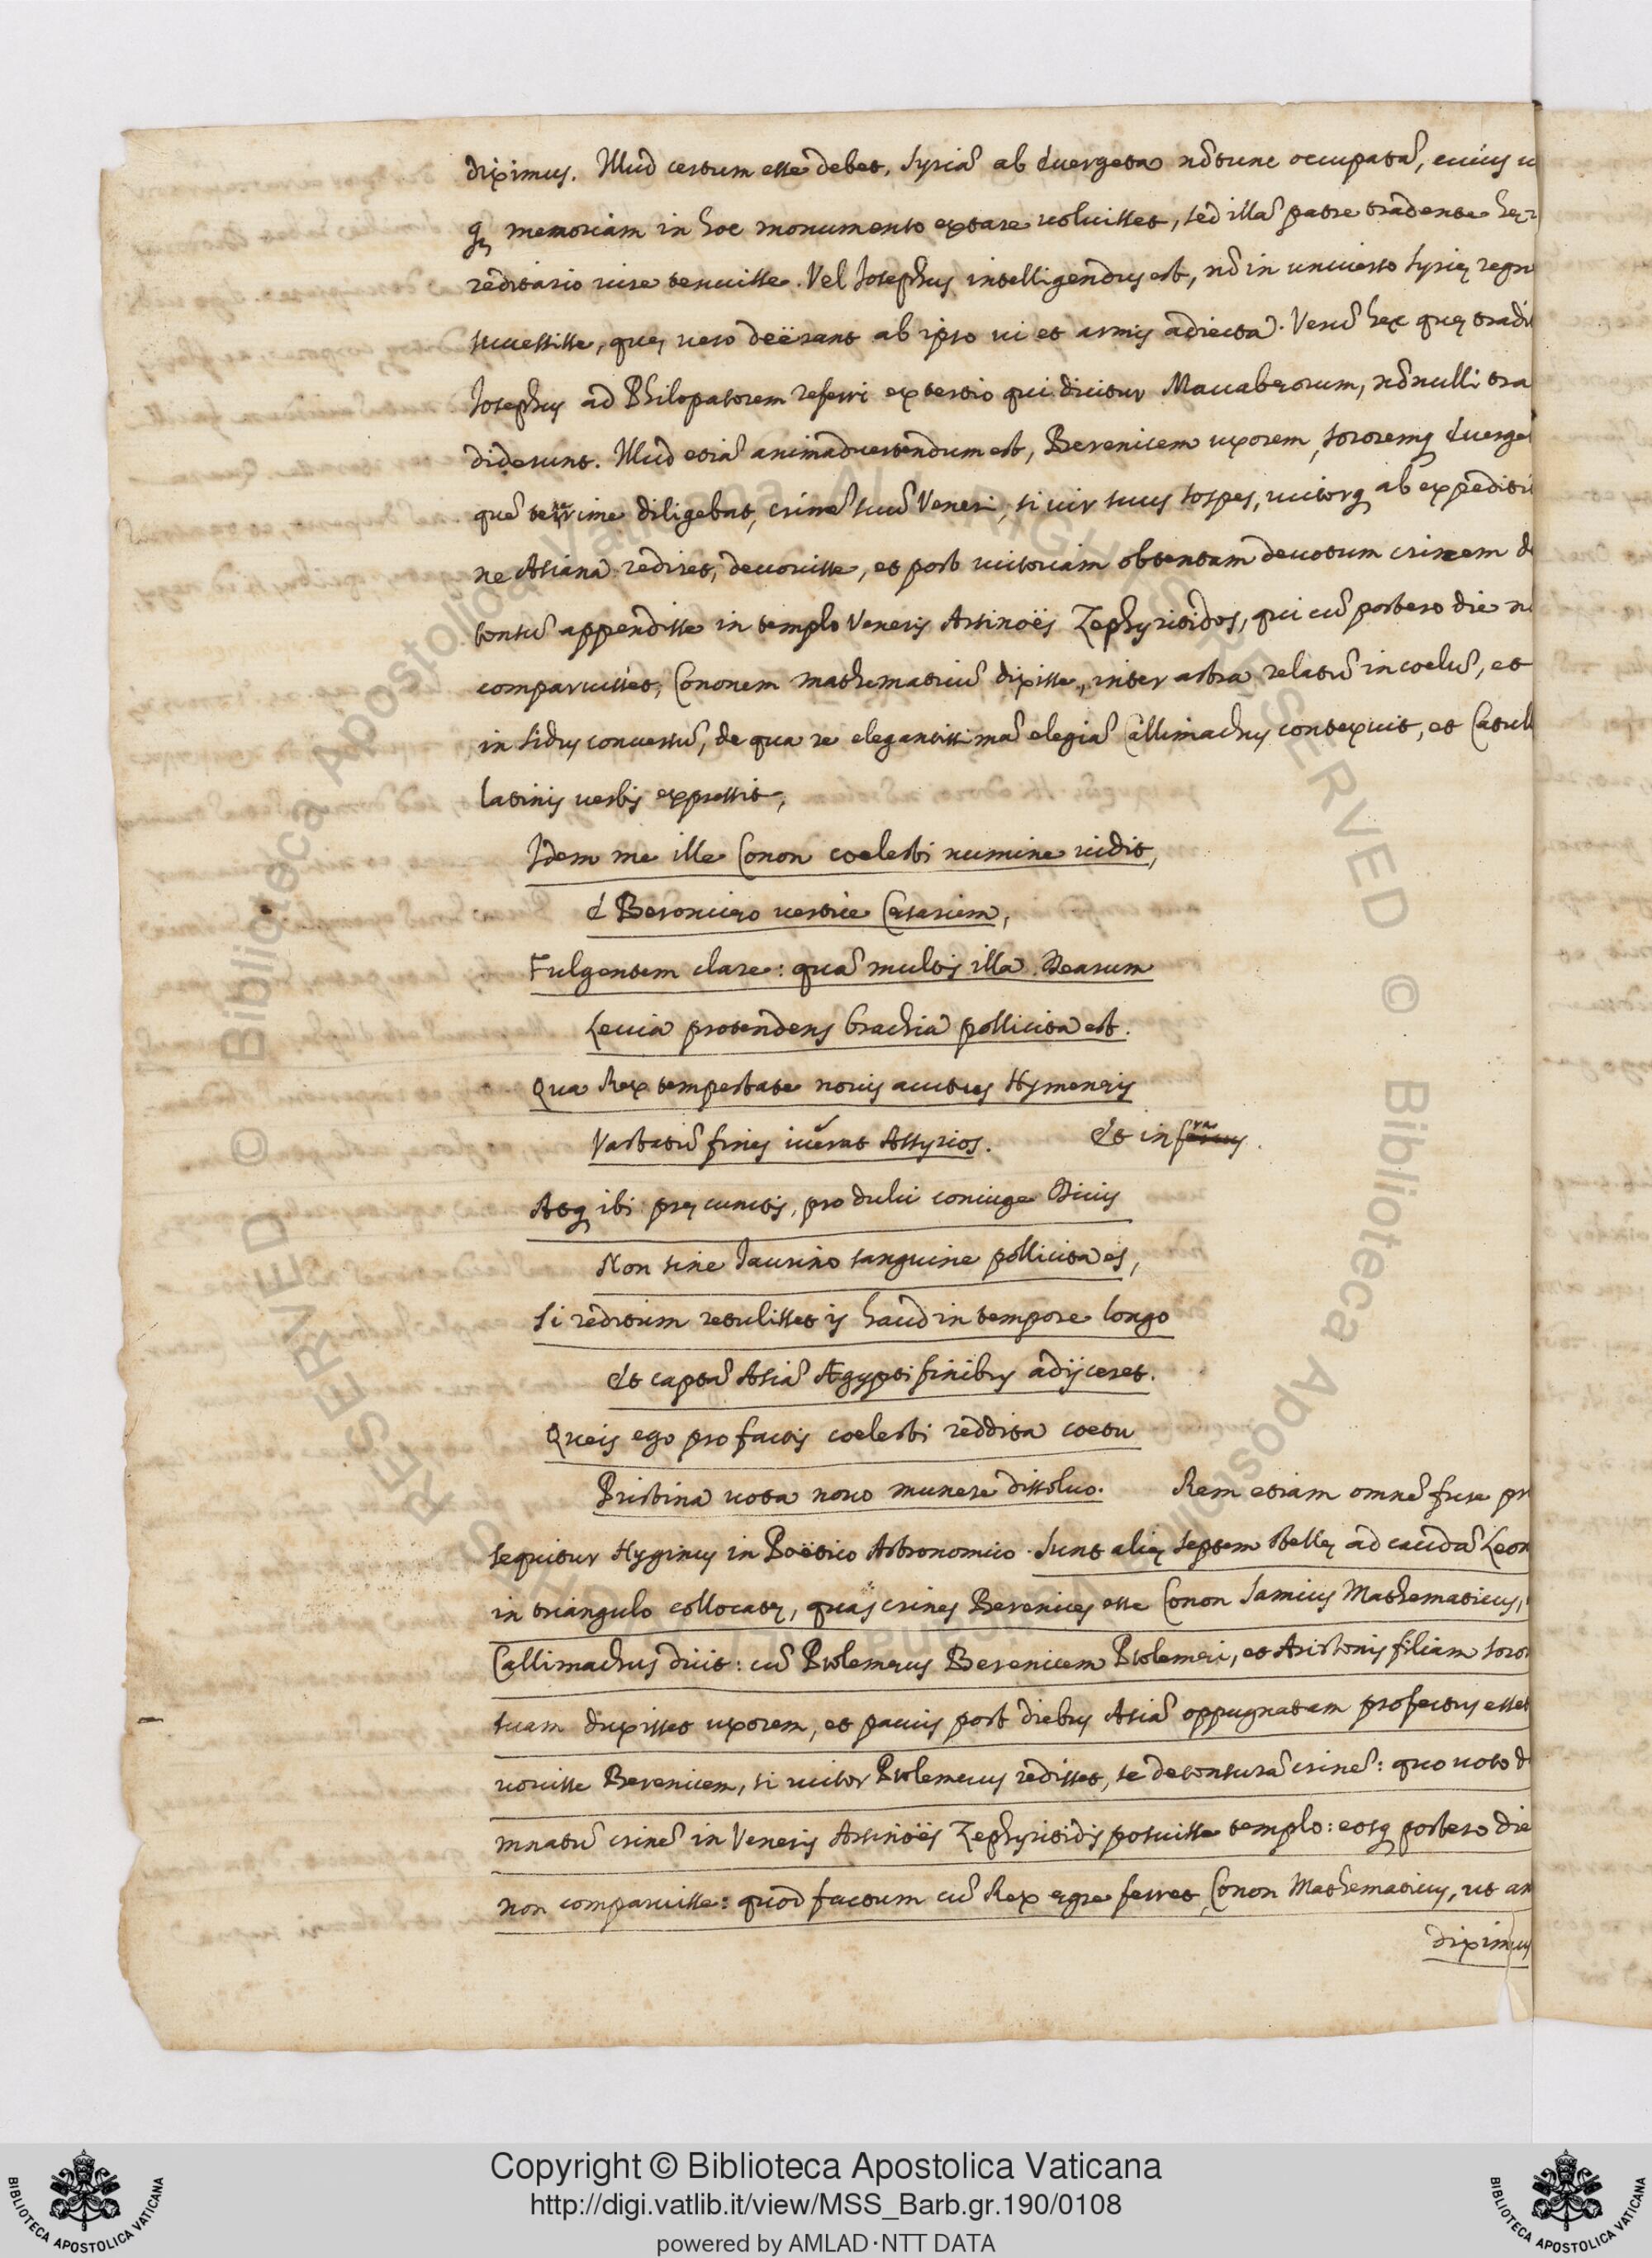 diximus. Illud certum esse debet, Syriã ab Euergeta nõ tunc occupatã, cuius
q; memoriam in hoc monumento extare uoluisset, sed illã patre tradente hę
reditario iure tenuisse. Vel Josephus intelligendus est, nõ in uniuerso Syrię regn
successisse, quę uero deërant ab ipso ui et armis adiecta. Verũ hęc quę tradi
Josephus ad Philopatorem referri ex tertio qui dicitur Maccabęorum, nõnulli tra
diderunt. Illud etiã animaduertendum est, Berenicem uxorem, sororemq; Euerge
quẽ diligebat, crinẽ suũ Veneri, si uir suus sospes, uictorq; ab expeditio
ne Asiana rediret, deuouisse, et post uictoriam obtentam deuotum crinem de
tonsũ appendisse in templo Veneris Arsinoës Zephyritidos, qui cũ postero die nõ
comparuisset, Cononem mathematicũ dixisse, inter astra relatũ in coelũ, et
in sidus conuersũ, de qua re elegantissimã elegiã Callimachus contexuit, et Catull
latinis uerbis expressit,
Idem me ille Conon coelesti numine uidit,
E Beroniceo uertice Cęsariem,
Fulgentem clare: quã multis illa Dearum
Leuia protendens brachia pollicita est.
Qua Rex tempestate nouis auctus Hymenęis
Vastatũ fines iuerat Assyrios. Et infra.
Atq; ibi prę cunctis, pro dulci coniuge Diuis
Non sine Taurino sanguine pollicita es,
Si reditum retulisset is haud in tempore longo
Et captã Asiã Ægypti finibus adijceret.
Queis ego pro factis coelesti reddita coetu
Pristina uota nouo munere dissoluo. Rem etiam omnẽ fuse pr
sequitur Hyginus in Poëtico Astronomico. Sunt alię septem stellę ad caudã Leon
in triangulo collocatę, quas crines Berenices esse Conon Samius Mathematicus,
Callimachus dicit: cũ Ptolemęus Berenicem Ptolemęi, et Aristonis filiam soror
suam duxisset uxorem, et paucis post diebus Asiã oppugnatam profectus esset
uouisse Berenicem, si uictor Ptolemęus redisset, se detonsurã crinẽ: quo uoto d
mnatũ crinẽ in Veneris Arsinoës Zephyritidis posuisse templo: eosq; postero die
non comparuisse: quod factum cũ Rex ęgre ferret, Conon Mathematicus, ut an
diximus
© Biblioteca Apostolica Vaticana ALL RIGHTS RESERVED
Copyright © Biblioteca Apostolica Vaticana
http://digi.vatlib.it/view/MSS_Barb.gr.190/0108
powered by AMLAD·NTT DATA
BIBLIOTECA APOSTOLICA VATICANA
BIBLIOTECA APOSTOLICA VATICANA